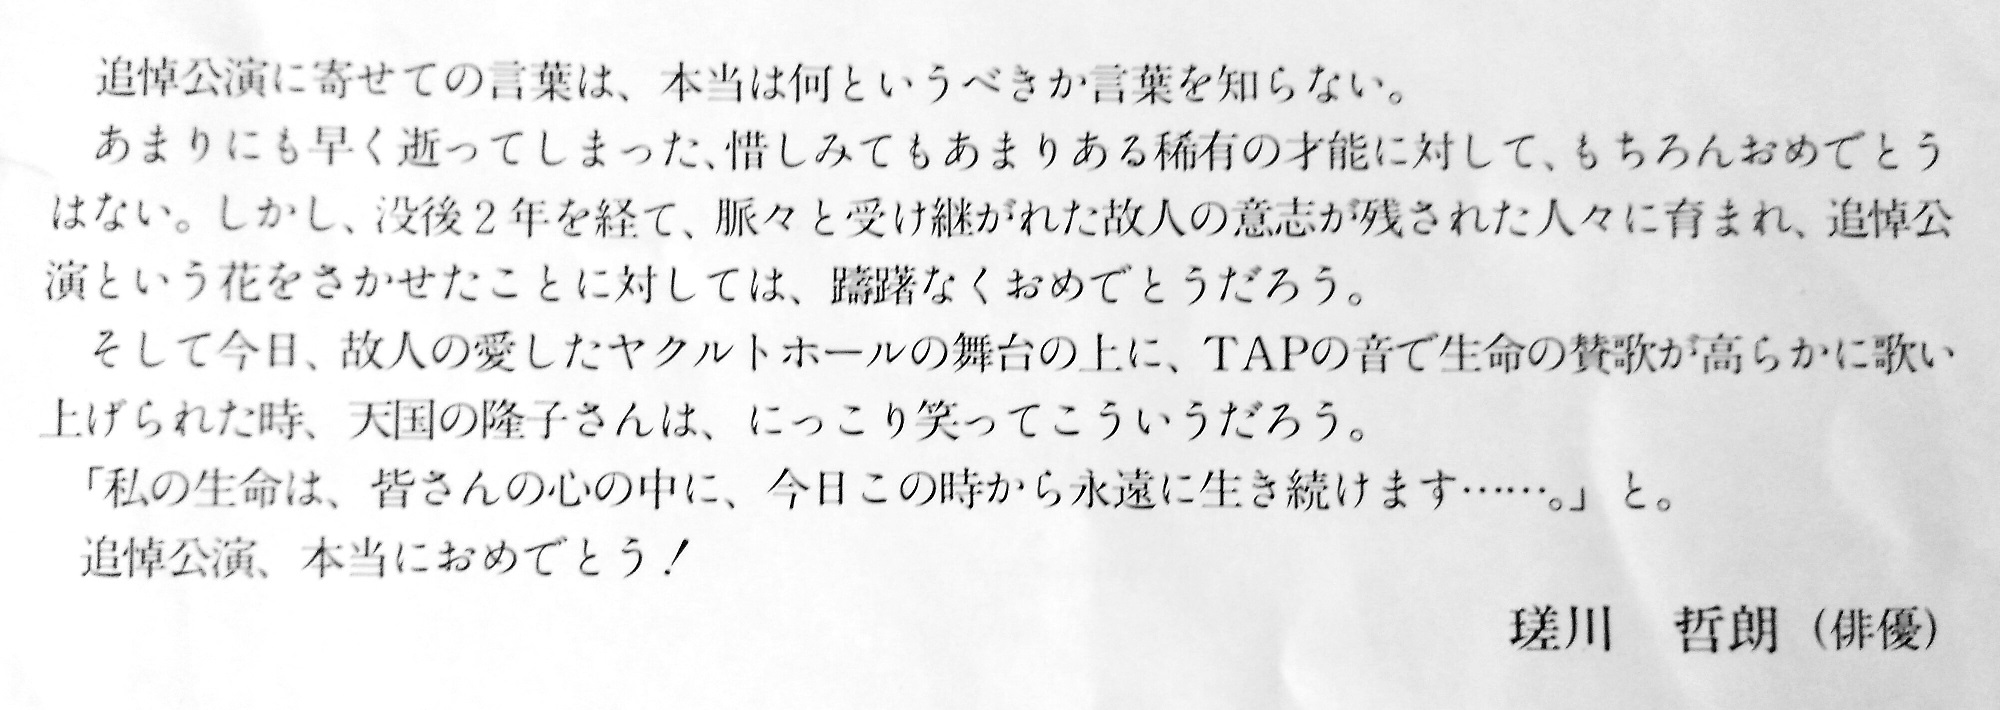 追悼公演に寄せての言葉は、本当は何というべきか言葉を知らない。
あまりにも早く逝ってしまった、惜しみてもあまりある稀有の才能に対して、もちろんおめでとう
はない。しかし、没後2年を経て、脈々と受け継がれた故人の意志が残された人々に育まれ、追悼公
演という花をさかせたことに対しては、躊躇なくおめでとうだろう。
そして今日、故人の愛したヤクルトホールの舞台の上に、TAPの音で生命の賛歌が高らかに歌い
上げられた時、天国の隆子さんは、にっこり笑ってこういうだろう。
「私の生命は、皆さんの心の中に、今日この時から永遠に生き続けます……。」と。
追悼公演、本当におめでとう！
瑳川　哲朗（俳優）